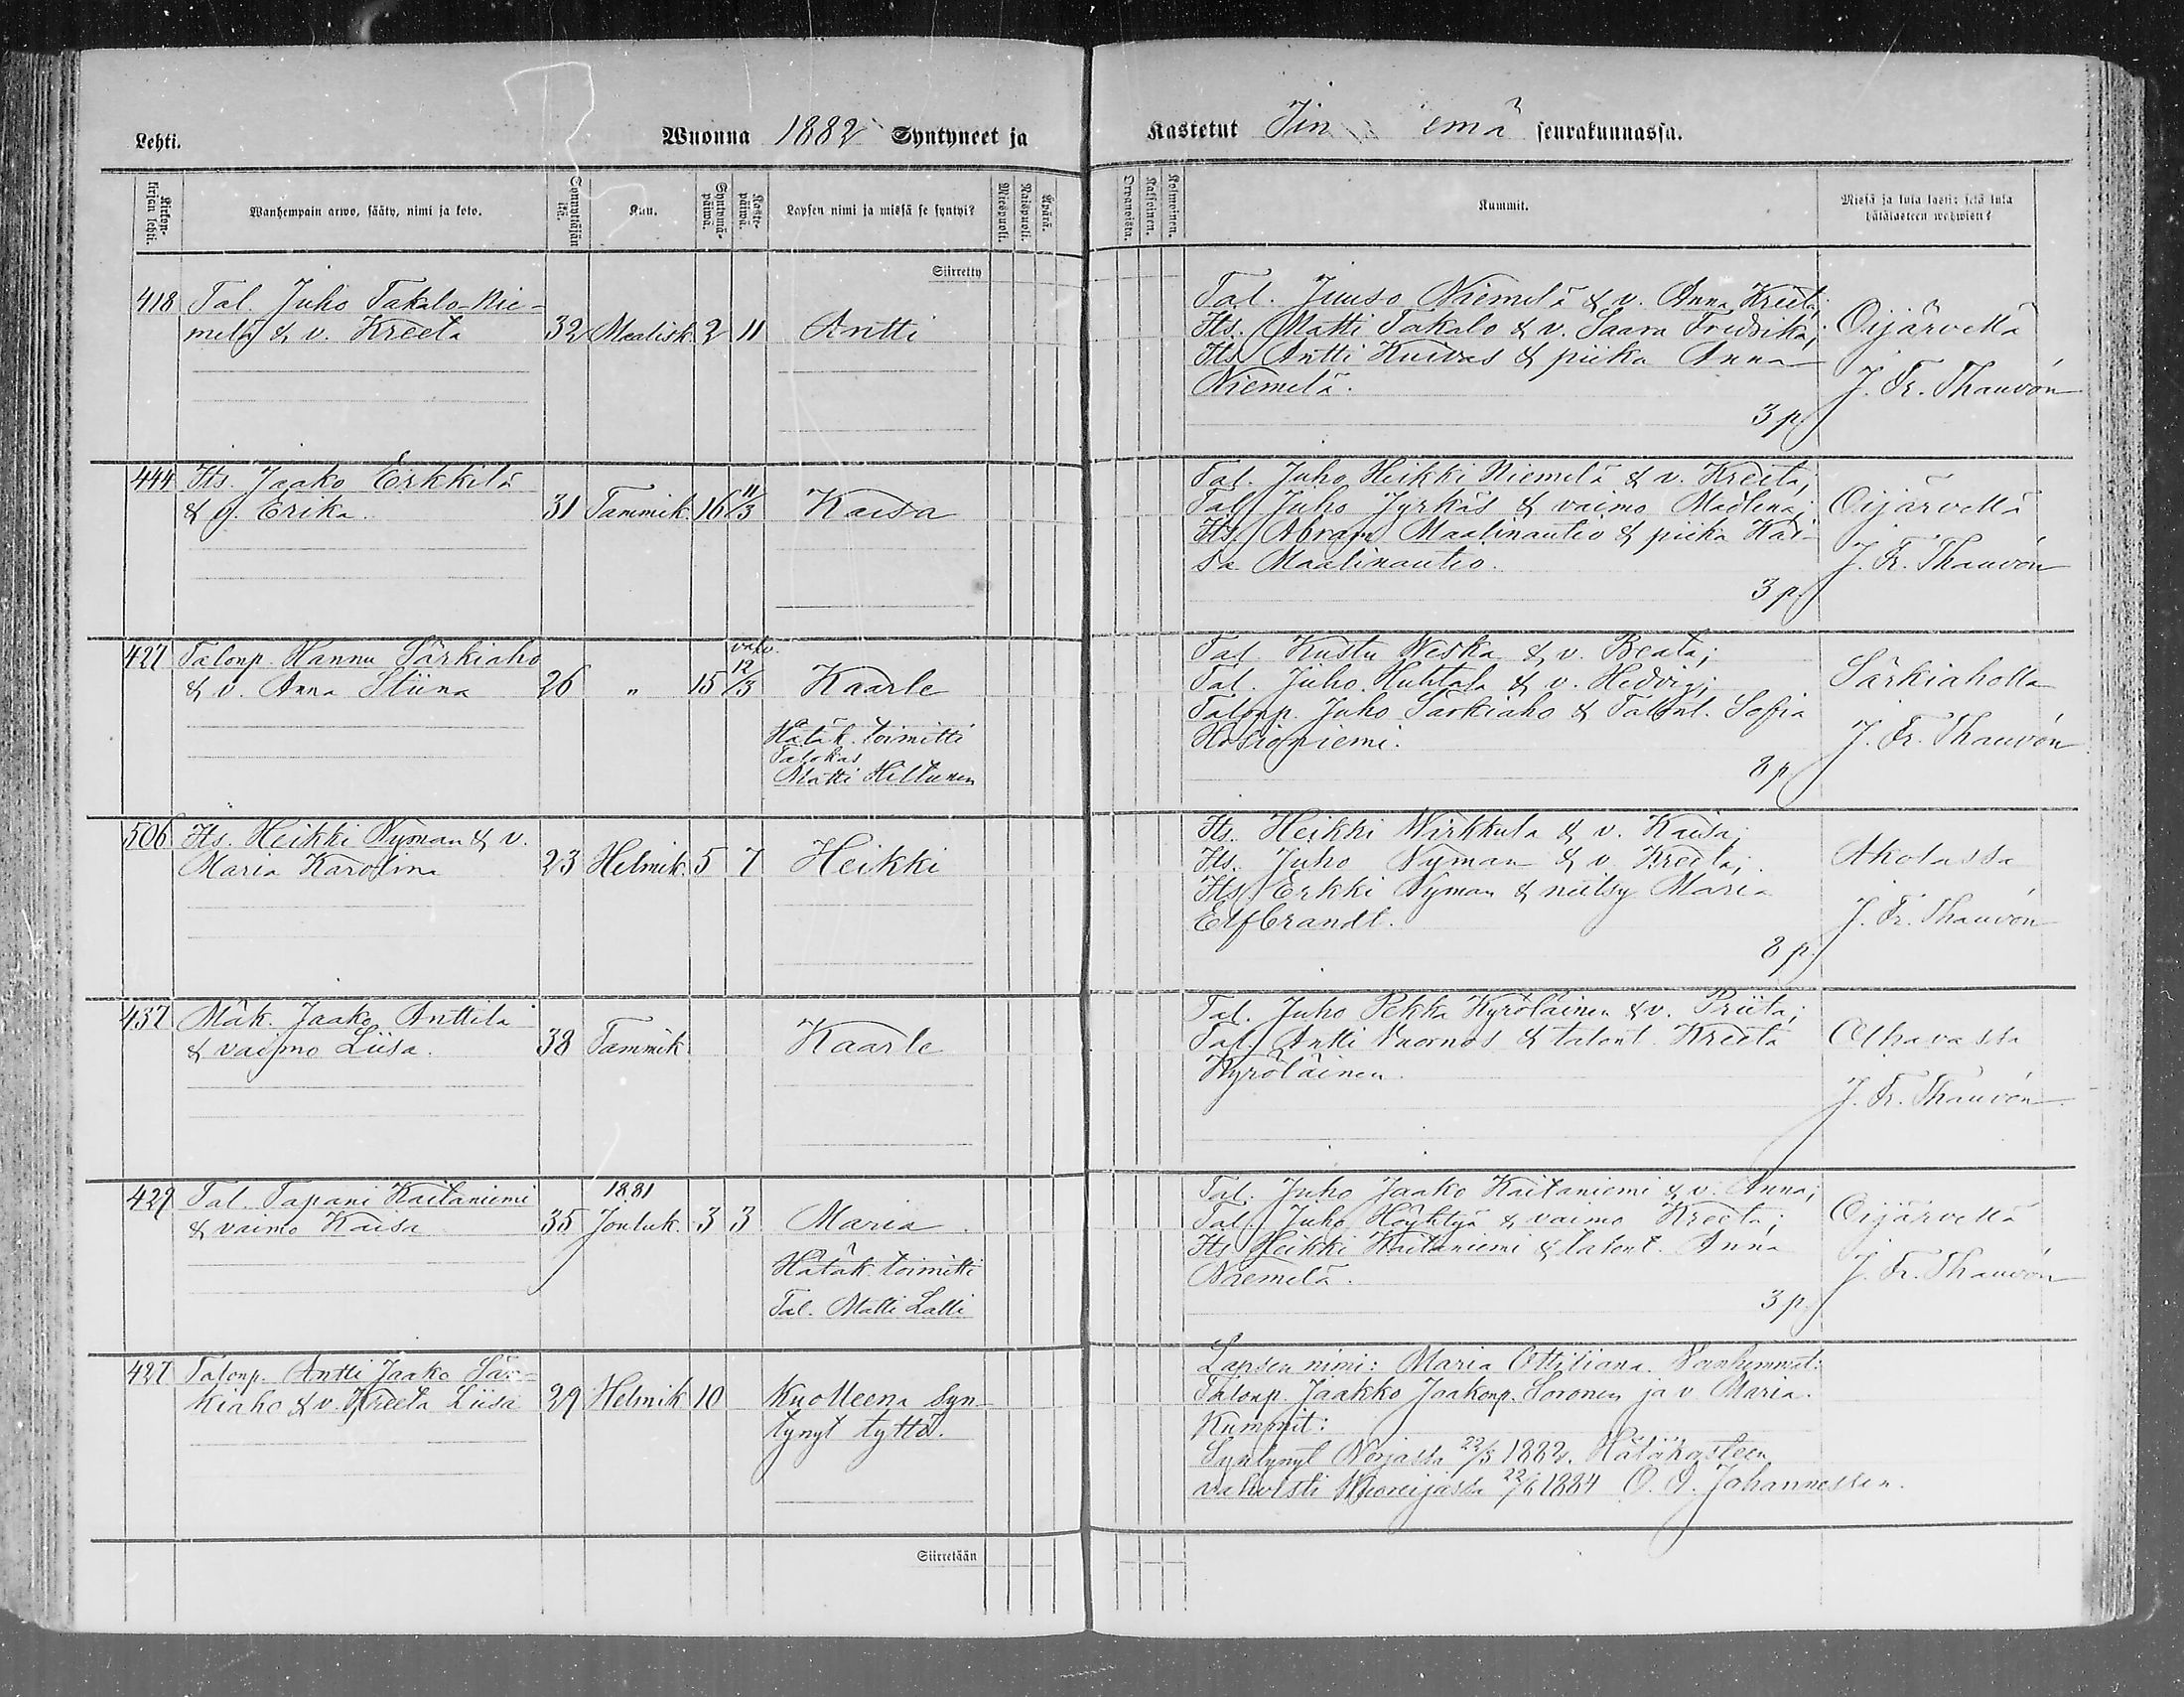 Lehti.
Wuonna 1882 Syntyneet ja
Kastetut Jin emä seurakunnassa.
Kirkon-kirjan lehti.
Wanhempain arwo, sääty, nimi ja koto.
Kuu.
Syntymä-päiwä.
Kaste-päiwä.
Lapsen nimi ja missä se syntyi?
Miespuoli.
Waispuoli.
Äpärä.
Orvanoista.
Kaksoinen.
Kolmoinen.
Kummit.
Missä ja kuka kasti; sekä kuka
hätäkasteen wahwisti?
Siirretty
418 Tal. Juho Takalo-Nie-
melä & v. Kreeta 32 Maalisk. 2 11 Antti
Tal. Juuso Niemelä & v. Anna Kreeta;
Its. Matti Takalo & v. Saara Fredrika;
Its. Antti Kuivas & piika Anna
Niemelä.
3 p.
Oijärvellä
J. Fr. Thauvón
444 Its. Jaako Erkkilä
& v. Erika. 31 Tammik. 16 11/3 Kaisa
Tal. Juho Heikki Niemelä & v. Kreeta;
Tal. Juho Jyrkäs & vaimo Madlena;
Its. Abram Maalinautio & piika Kai-
sa Maalinautio.
3 p.
Oijärvellä
J. Fr. Thauvón
427 Talonp. Hannu Särkiaho
& v. Anna Stiina 26 " 15 vahv. 12/3 Kaarle
Hätäk. toimitti
Talokas
Matti Hiltunen
Tal. Kustu Weska & v. Beata;
Tal. Juho Huhtala & v. Hedvig;
Talonp. Juho Särkiaho & Talont. Sofia
Hosioniemi.
8 p
Särkiaholla
J. Fr. Thauvón
506 Its. Heikki Nyman & v.
Maria Karolina 23 Helmik. 5 7 Heikki
Its. Heikki Wirkkula & v. Kaisa;
Its. Juho Nyman & v. Kreeta;
Its. Erkki Nyman & neitsy Maria
Elfbrandt.
8 p.
Akolassa
J. Fr. Thauvón
457 Mäk. Jaako Anttila
& vaimo Liisa. 38 Tammik. Kaarle
Tal. Juho Pekka Kyröläinen & v. Priita;
Tal. Antti Vuornos & talont. Kreeta
Kyröläinen.
Olhavassa
J. Fr. Thauvón
429 Tal. Tapani Kaitaniemi
& vaimo Kaisa 35 1881 Jouluk. 3 3 Maria
Hätäk. toimitti
Tal. Matti Lalli
Tal. Juho Jaako Kaitaniemi & v. Anna;
Tal. Juho Höyhtyä & vaimo Kreeta;
Its. Heikki Kaitaniemi & talont. Anna
Niemelä.
3 p.
Oijärvellä
J. Fr. Thauvón
427 Talonp. Antti Jaako Sär-
kiaho & v. Kreeta Liisa 29 Helmik 10 Kuolleena syn-
tynyt tyttö.
Lapsen nimi: Maria Ottiliana. Vanhemmat:
Talonp. Jaakko Jaakonp. Soronen ja v. Maria.
Kummit:
Syntynyt Norjassa 22/3 1882. Hätäkasteen
vahvisti Vuoreijassa 22/6 1884 O. I. Johannessen.
Siirretään